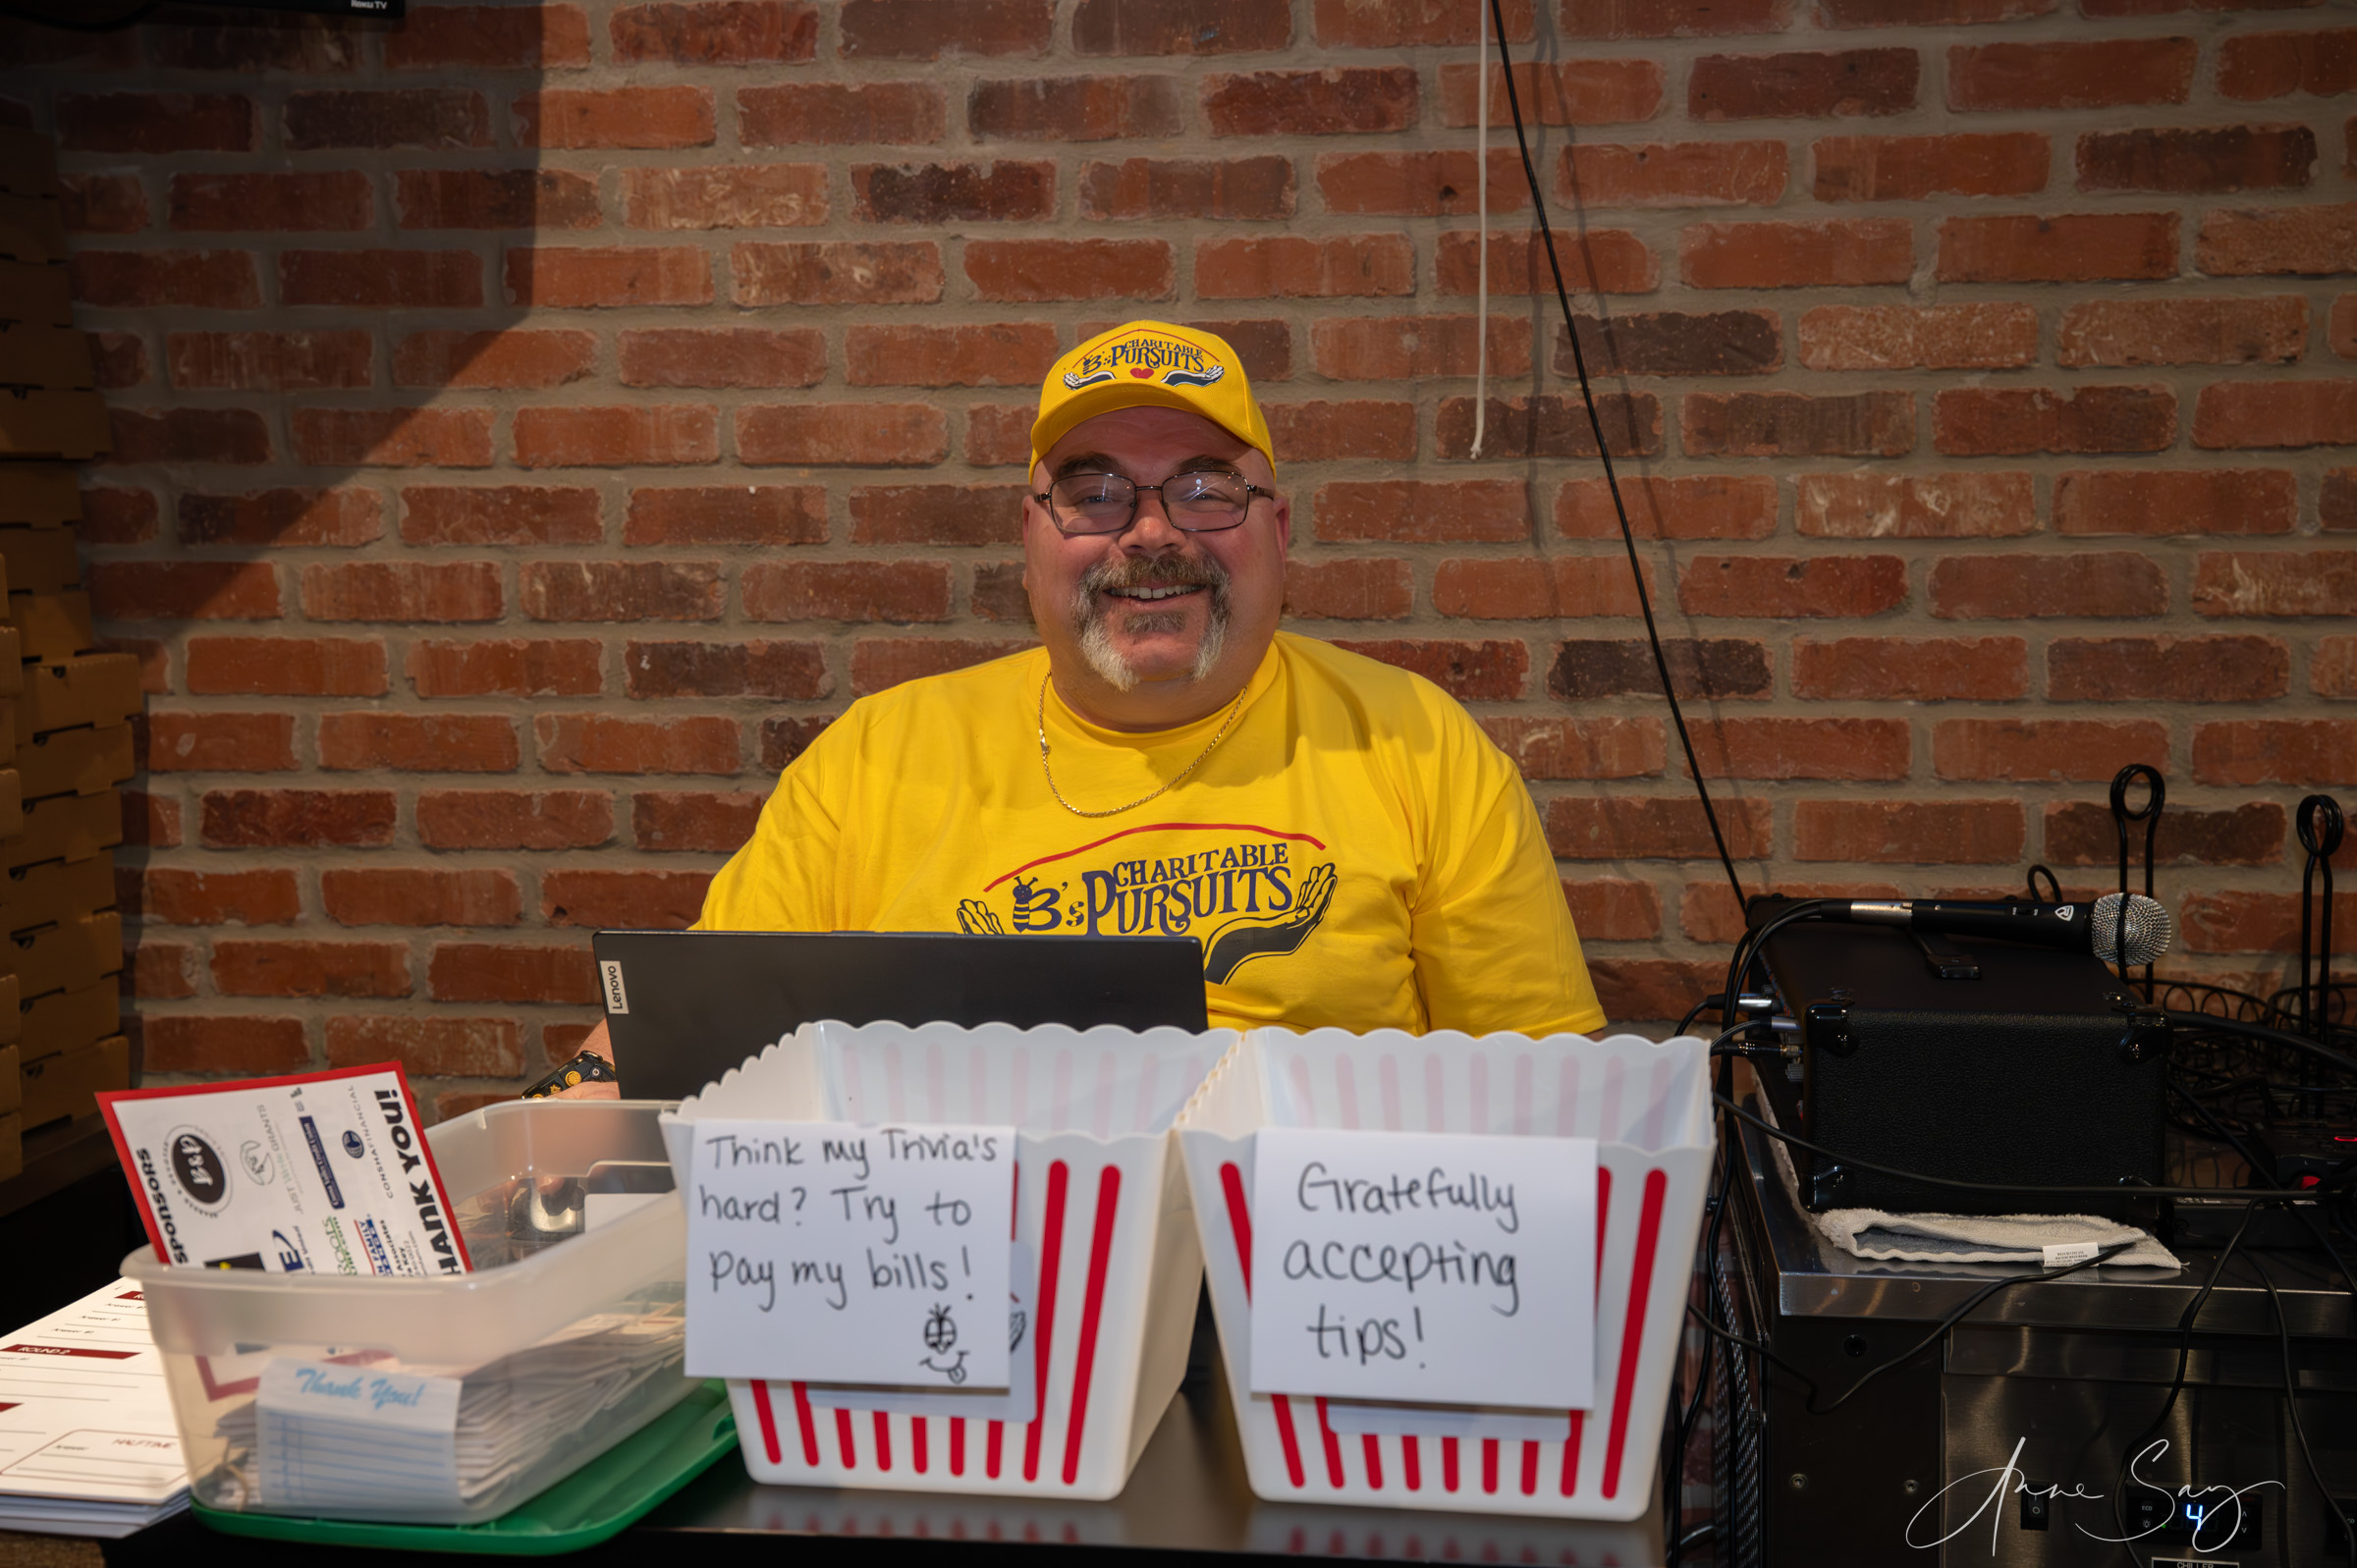 Roku TV
CHARITABLE
B's PURSUITS
CHARITABLE
B's PURSUITS
Lenovo
Think my Trivia's
hard? Try to
pay my bills!
Gratefully
accepting
tips!
SPONSORS
JUST WRITE GRANTS
CONSHAFINANCIAL
THANK YOU!
Thank You!
ROUND 2
HALFTIME
ECO
4
CHILLER
Anne Say